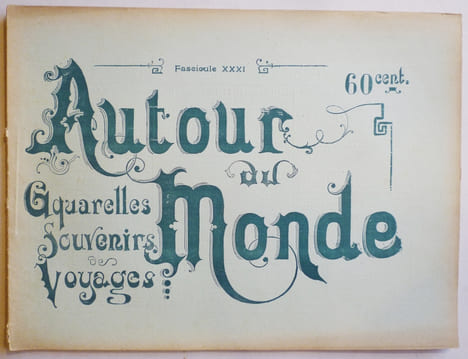 Fascicule XXXI
60 cent.
Autour
du
Monde
Aquarelles
Souvenirs
de
Voyages